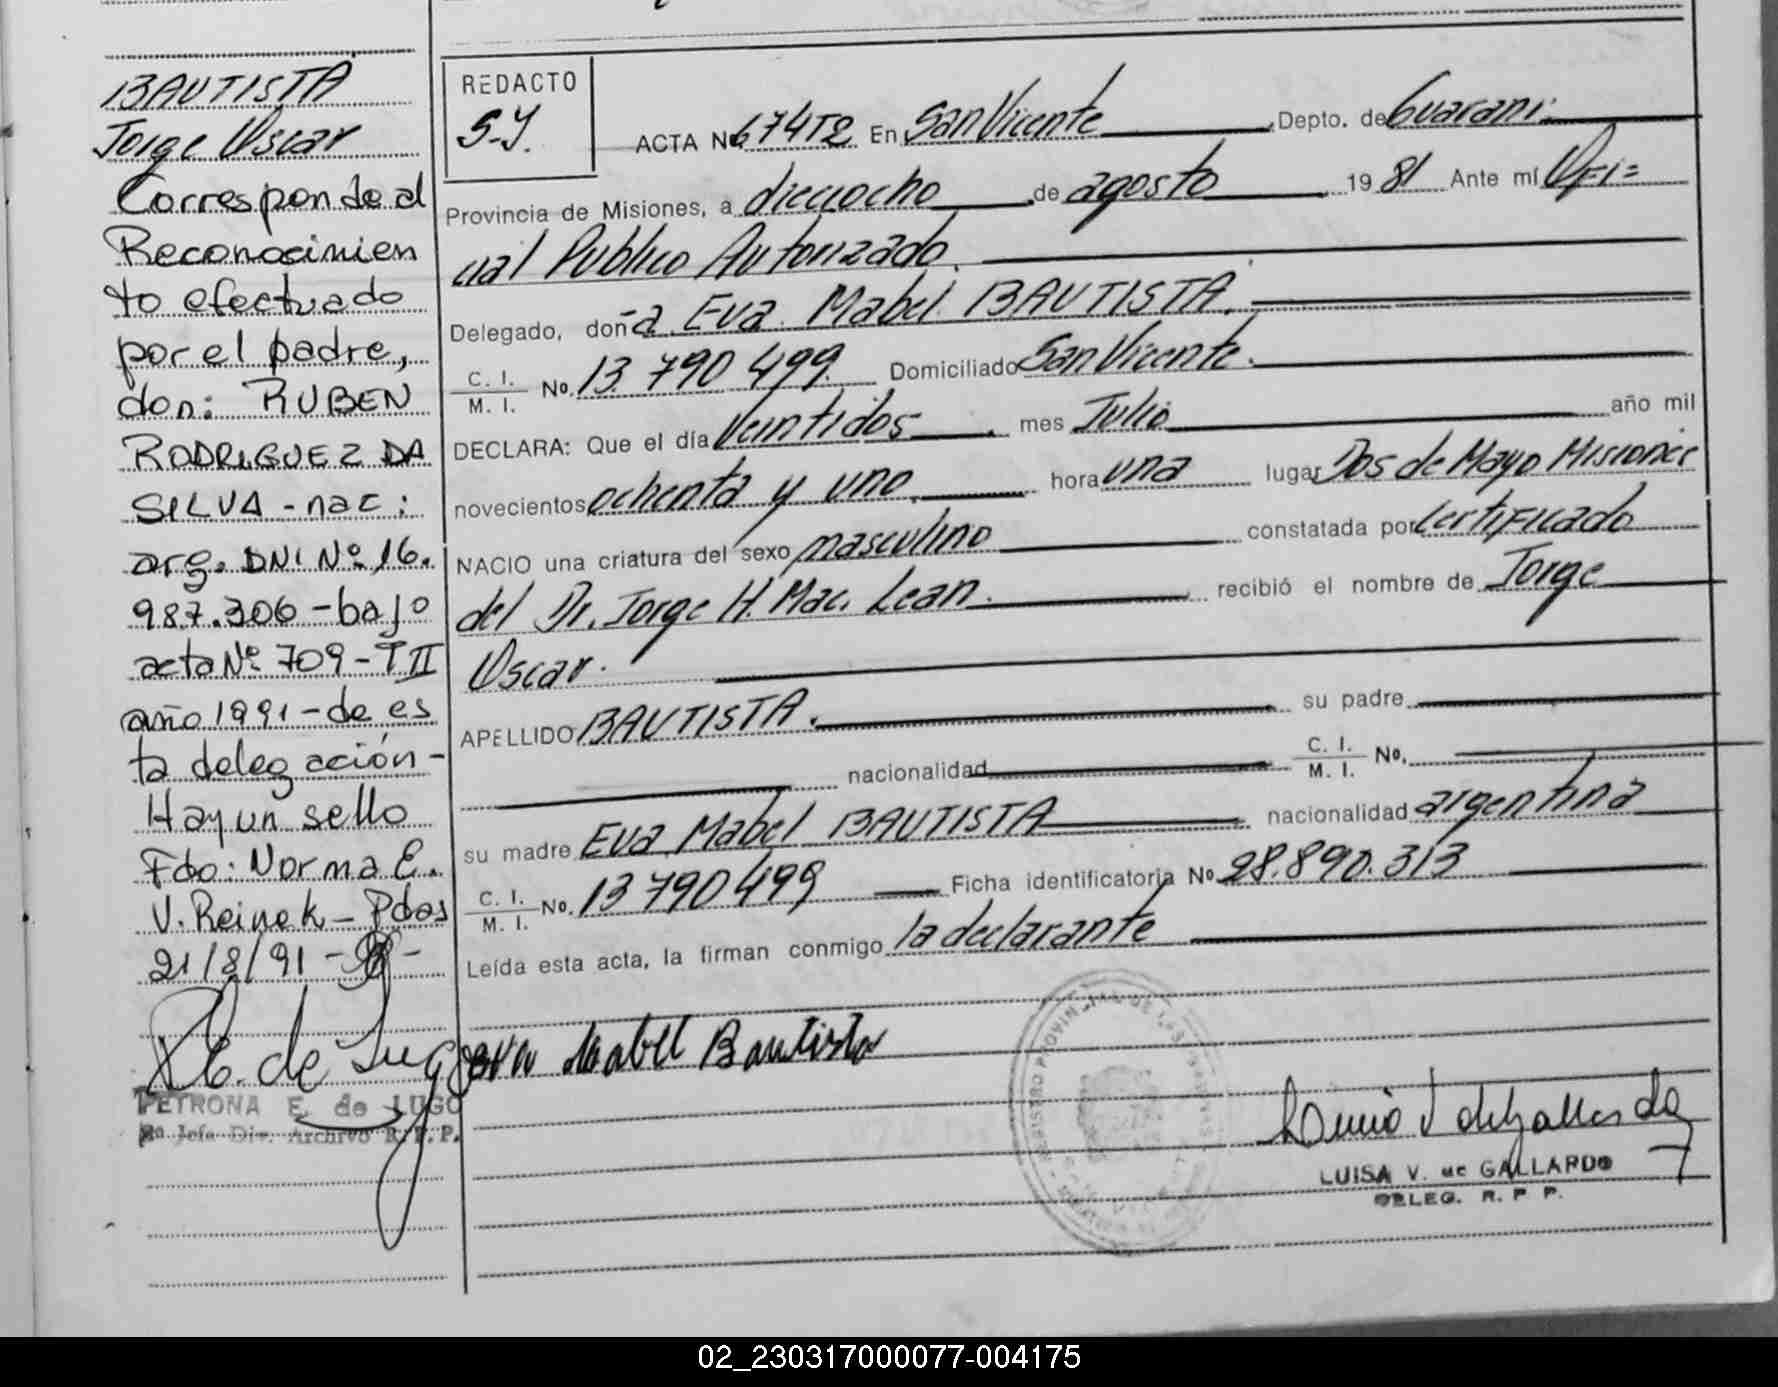 BAUTISTA
Jorge Oscar
Corresponde al
Reconocimien
to efectuado
por el padre,
don: RUBEN
RODRIGUEZ DA
SILVA - nac:
arg. DNI Nº 16.
987.306 - bajo
acta Nº 709 - T II
año 1991 - de es
ta delegación -
Hay un sello
Fdo: Norma E.
V. Reinek - Pdas
21/8/91 -
PETRONA E. de LUGO
Jefa Div. Archivo R.P.P.
REDACTO
S.Y.
ACTA No 674T2 En San Vicente Depto. de Guarani.
Provincia de Misiones, a dieciocho de agosto 19 81 Ante mí Ofi=
cial Publico Autorizado.
Delegado, doña Eva Mabel BAUTISTA.
C. I. / M. I. No. 13.790.499. Domiciliado San Vicente.
DECLARA: Que el día Veintidos mes Julio año mil
novecientos ochenta y uno. hora una lugar Dos de Mayo Misiones
NACIO una criatura del sexo masculino constatada por certificado
del Dr. Jorge H. Mac. Lean. recibió el nombre de Jorge
Oscar.
APELLIDO BAUTISTA. su padre
nacionalidad C. I. / M. I. No.
su madre Eva Mabel BAUTISTA nacionalidad argentina
C. I. / M. I. No. 13790499 Ficha identificatoria No 28.890.313
Leída esta acta, la firman conmigo la declarante
Eva Mabel Bautista
LUISA V. de GALLARDO
DELEG. R. P. P.
02_230317000077-004175